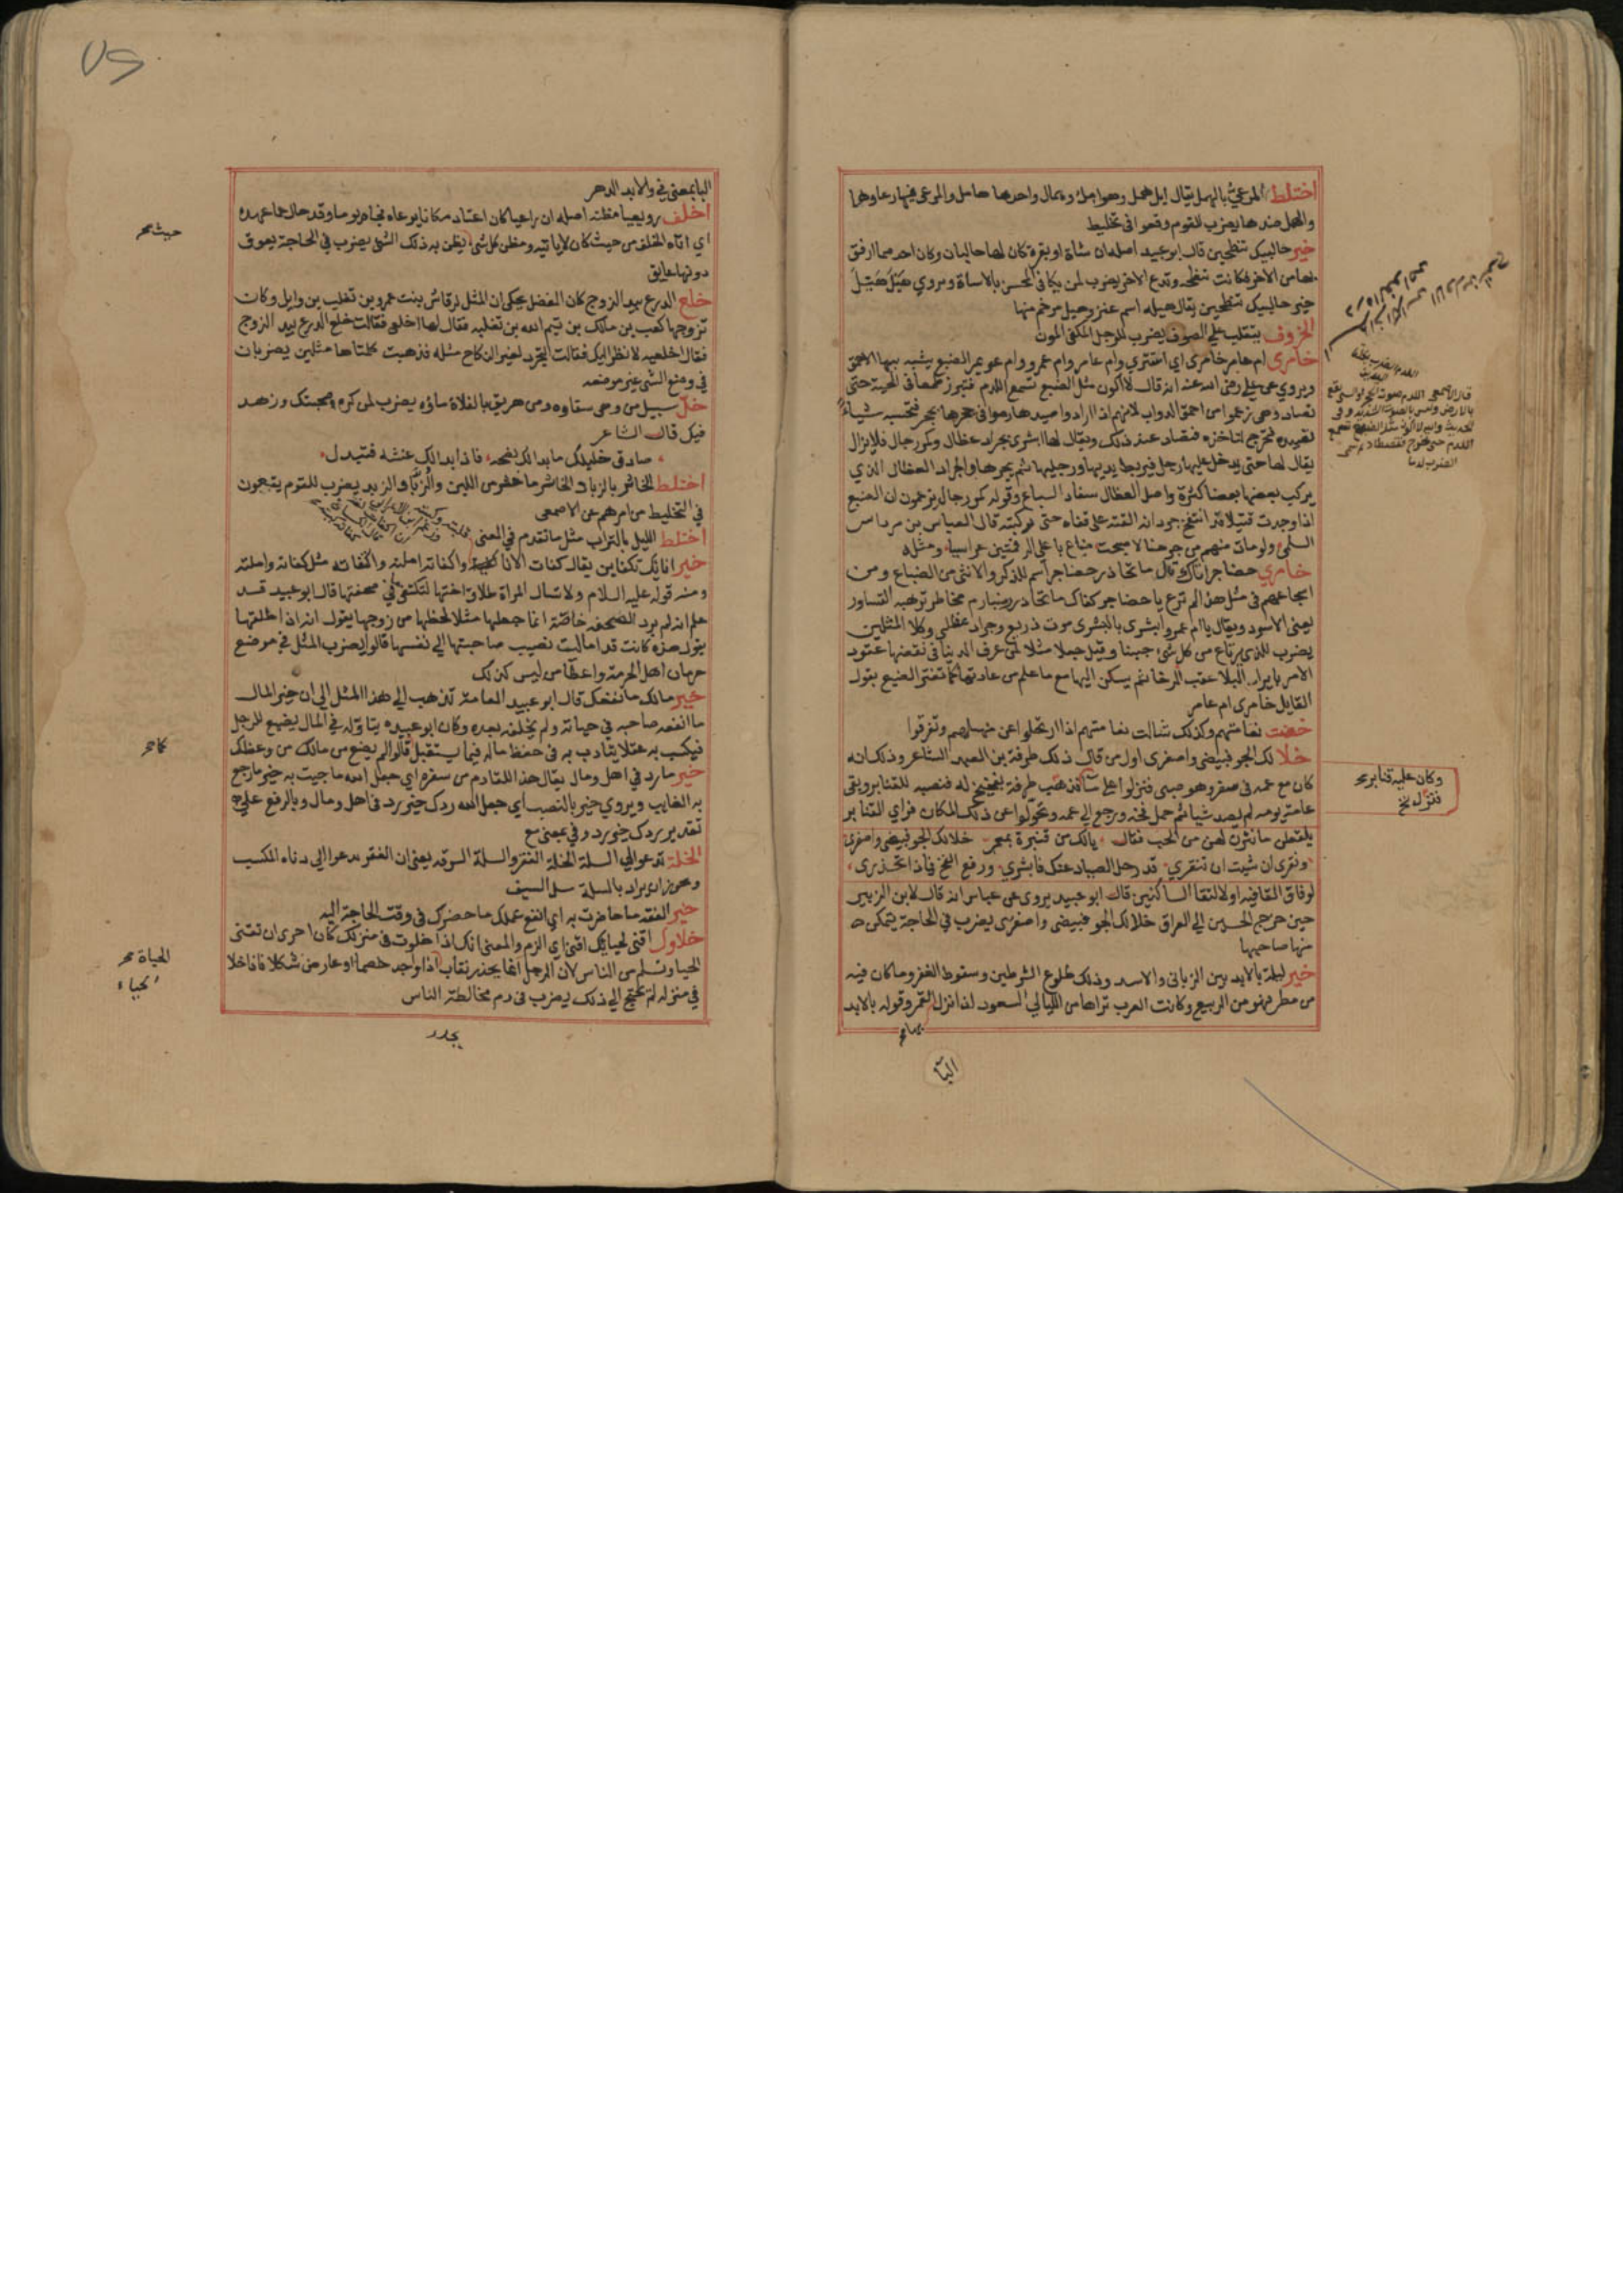 اختلط المرعي بالهمل يقال ابل همل وهوامل وهمال واحدها هامل والمرعى فيها رعاوها
والهمل ضدها يضرب للقوم وقعوا في تخليط
خير حالبيك تنطحين قال ابو عبيد اصله ان شاة او بقرة كان لها حالبان وكان احدهما ارفق
بها من الاخر فكانت تنطحه وتدع الاخر يضرب لمن يكافي المحسن بالاساة ويروي هيل هيل
خير حالبيك تنطحين يقال هيله اسم عنز وهيل مرخم منها
الخروف يتقلب علي الصوف يضرب للرجل المكفي المون
خامري ام عامر خامري اي استتري وام عامر وام عمرو وام عويمر الضبع يشبه بها الاحمق
ويروي عن علي رضي الله عنه انه قال لا اكون مثل الضبع تسمع اللدم فتبرز طمعا في الحية حتى
تصاد وهي زعموا من احمق الدواب لانهم اذا ارادوا صيدها رموا في جحرها بحجر فتحسبه شياء
تصيده فتخرج لتاخذه فتصاد عند ذلك ويقال لها ابشري بجراد عظال وكمر رجال فلا يزال
يقال لها حتى يدخل عليها رجل فيربط يديها ورجليها ثم يجرها والجراد العظال الذي
يركب بعضها بعضا كثرة واصل العظال سفاد السباع وقوله كمر رجال يزعمون ان الضبع
اذا وجدت قتيلا قد انتفخ جردانه القته علي قفاه حتى تركبته قال العباس بن مرداس
السلمي ولو مات منهم من جرحنا لاصبحت ضباع باعلي الرقمتين عرايسا ومثله
خامري حضاجر اتاك ما تحاذر حضاجر اسم للذكر والانثى من الضباع ومن
اسجاعهم في مثل هذا الم ترع يا حضاجر كفاك ما تحاذر ضبارم مخاطر ترهبه القساور
يعني الاسود ويقال يا ام عمرو ابشري بالبشري موت ذريع وجراد عظلي وكلا المثلين
يضرب للذي يرتاع من كل شيء جبنا وقيل جعلا مثلا لمن عرف الدنيا في نقضها عقود
الامر بايراد البلا عقب الرخا ثم يسكن اليها مع ما علم من عادتها كما تغتر الضبع بقول
القايل خامري ام عامر
خفت نعامتهم وكذلك شالت نعامتهم اذا ارتحلوا عن منهلهم وتفرقوا
خلا لك الجو فبيضي واصفري اول من قال ذلك طرفة بن العبد الشاعر وذلك انه
كان مع عمه في سفر وهو صبي فنزلوا على ماء فذهب طرفة بفخيخ له فنصبه للقنابر وبقي
عامة يومه لم يصد شيا ثم حمل فخه ورجع الى عمه وتحولوا عن ذلك المكان فراي القنابر
يلقطن ما نثر لهن من الحب فقال يا لك من قنبرة بمعمر خلا لك الجو فبيضي واصفري
ونقري ان شيت ان تنقري قد رحل الصياد عنك فابشري ورفع الفخ فماذا تحذري
لوفاق القافيه او لالتقا الساكنين قال ابو عبيد يروي عن عباس انه قال لابن الزبير
حين خرج الحسين الي العراق خلا لك الجو فبيضي واصفري يضرب في الحاجة يتمكن
منها صاحبها
خير ليلة بالابد بين الزباني والاسد وذلك طلوع الشرطين وسقوط الغفر وما كان فيه
من مطر فهو من الربيع وكانت العرب تراها من الليالي السعود اذا نزل القمر وقوله بالابد
وكان عليه قنابر
فنزل
البا
البا بمعنى في والابد الدهر
اخلف رويعيا مظنه اصله ان راعيا كان اعتاد مكانا يرعاه فجاه يوما وقد حال عما عهده
اي اتاه الخلف من حيث كان لا ياتيه ومظن كل شيء يظن به ذلك الشي يضرب في الحاجة يعوق
دونها عايق
خلع الدرع بيد الزوج كان المفضل يحكي ان المثل لرقاش بنت عمرو بن تغلب بن وايل وكان
تزوجها كعب بن مالك بن تيم الله بن ثعلبه فقال لها اخلعي فقالت خلع الدرع بيد الزوج
فقال اخلعيه لانظر اليك فقالت التجرد لغير النكاح مثله فذهبت كلمتاها مثلين يضربان
في وضع الشي غير موضعه
خل سبيل من وهي سقاوه ومن هريق بالفلاة ماؤه يضرب لمن كره صحبتك وزهد
فيك قال الشاعر
صادق خليلك ما بدا لك نصحه فاذا بدا لك غشه فتبدل
اختلط الخاثر بالزباد الخاثر ما خثر من اللبن والزباد الزبد يضرب للقوم يقعون
في التخليط من امرهم عن الاصمعي
اختلط الليل بالتراب مثل ما تقدم في المعنى
خير اناييك تكفاين يقال كفات الانا كببته واكفاته املته واكتفاته مثل كفاته واملته
ومنه قوله عليه السلام ولا تسال المراة طلاق اختها لتكتفي ما في صحفتها قال ابو عبيد قد
علم انه لم يرد الصحفه خاصة انما جعلها مثلا لحظها من زوجها يقول انه اذا طلقها
بقول هذه كانت قد امالت نصيب صاحبتها الي نفسها قالوا يضرب المثل في موضع
حرمان اهل الحرمة واعطا من ليس كذلك
خير مالك ما نفعك قال ابو عبيد العامة تذهب الي هذا المثل الي ان خير المال
ما انفقه صاحبه في حياته ولم يخلفه بعده وكان ابو عبيده يتاوله في المال يضيع للرجل
فيكسب به عقلا يتادب به في حفظ ماله فيما يستقبل قالوا لم يضع من مالك من وعظك
خير ما رد في اهل ومال يقال هذا للقادم من سفره اي جعل الله ما جيت به خير ما رجع
به الغايب ويروي خير بالنصب اي جعل الله ردك خير رد في اهل ومال وبالرفع علي
تقدير ردك خير رد وفي بمعنى مع
الخلة تدعو الي السلة الخلة الفقر والسلة السرقه يعني ان الفقر يدعو الي دناءة المكسب
ويجوز ان يراد بالسلة سل السيف
خير الفقه ما حاضرت به اي انفع علمك ما حضرك في وقت الحاجة اليه
خلاوك اقنى لحيايك اقنى اي الزم والمعنى انك اذا خلوت في منزلك كان احرى ان تقتنى
الحيا وتسلم من الناس لان الرجل انما يحذر ذهاب اذا واجد خصما او عارض شكلا فاذا خلا
في منزله لم يحتج الي ذلك يضرب في ذم مخالطة الناس
حيث
كما
الحياة
الحياء